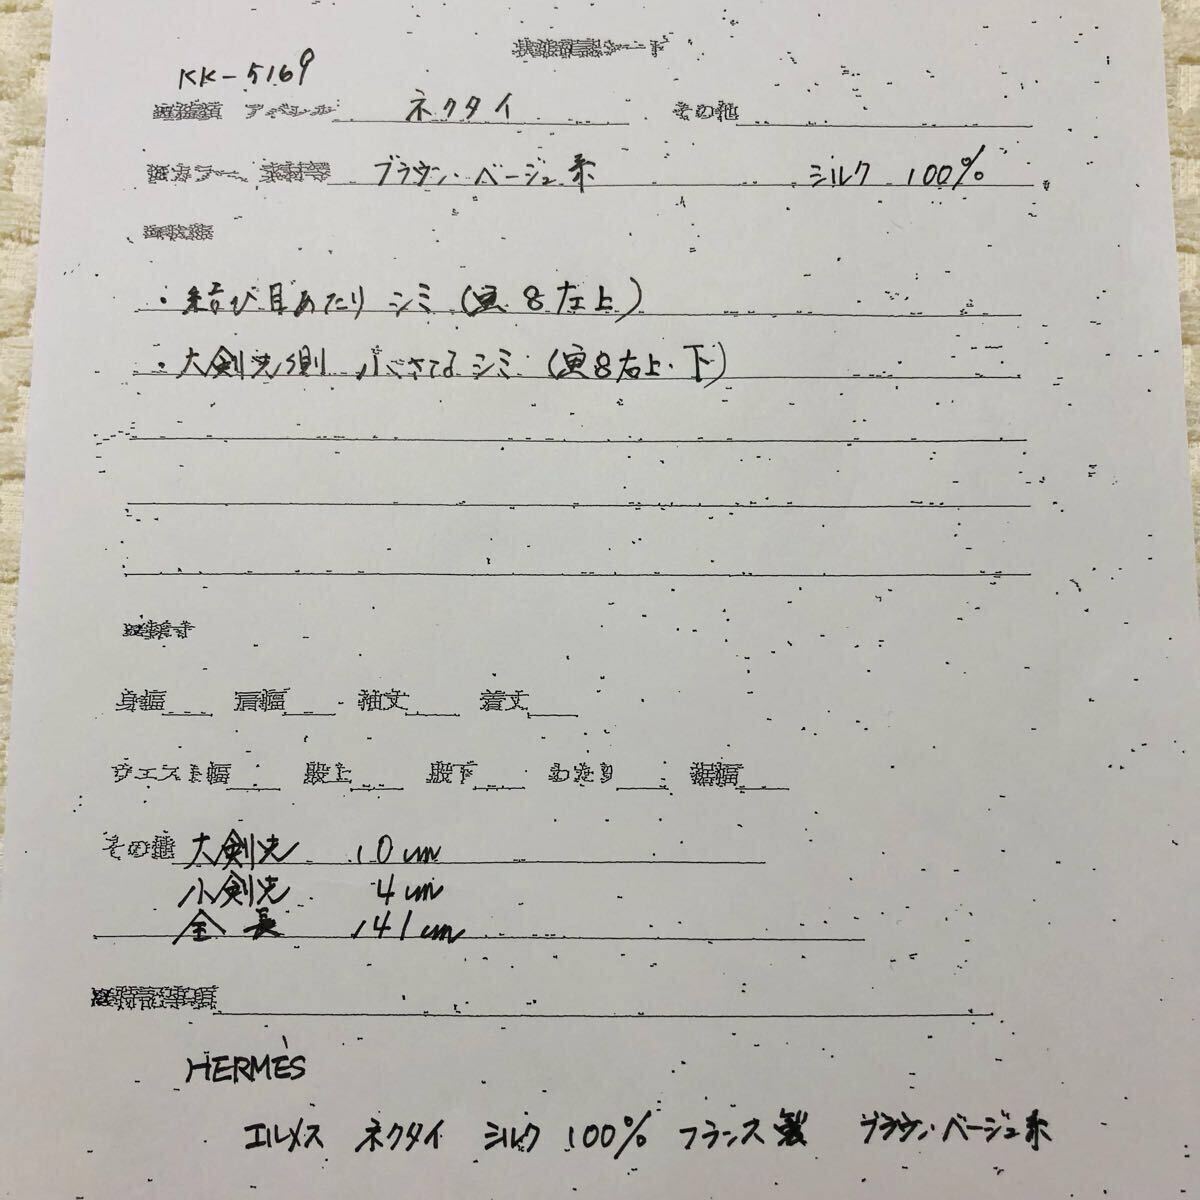 状態確認シート
KK-5169
アパレル ネクタイ その他
カラー、素材等 ブラウン・ベージュ系 シルク 100%
・結び目あたり シミ (寅 8 左上)
・大剣先側 小さな シミ (寅8右上・下)
身幅 肩幅 袖丈 着丈
ウエスト幅 股上 股下 わたり 裾幅
その他 大剣先 10cm
小剣先 4cm
全長 141cm
特記事項
HERMÈS
エルメス ネクタイ シルク 100% フランス製 ブラウン・ベージュ系